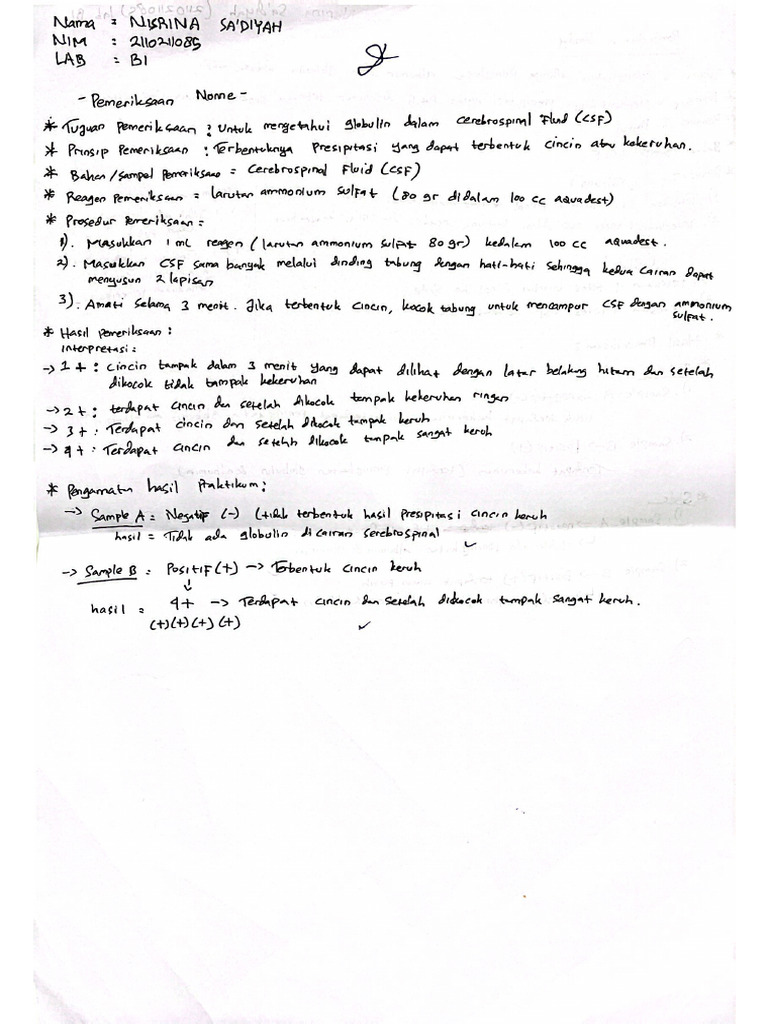 Nama : NISRINA SA'DIYAH
NIM : 2110211085
LAB : B1
- Pemeriksaan Nonne -
* Tujuan Pemeriksaan : Untuk mengetahui globulin dalam Cerebrospinal Fluid (CSF)
* Prinsip Pemeriksaan : Terbentuknya Presipitasi yang dapat terbentuk cincin atau kekeruhan.
* Bahan/Sampel Pemeriksaan = Cerebrospinal Fluid (CSF)
* Reagen Pemeriksaan = Larutan ammonium Sulfat (80 gr didalam 100 cc aquadest)
* Prosedur Pemeriksaan =
1). Masukkan 1 mL reagen (larutan ammonium sulfat 80 gr) kedalam 100 cc aquadest.
2). Masukkan CSF sama banyak melalui dinding tabung dengan hati-hati sehingga kedua cairan dapat
menyusun 2 lapisan
3). Amati selama 3 menit. Jika terbentuk cincin, kocok tabung untuk mencampur CSF dengan ammonium
sulfat.
* Hasil Pemeriksaan :
Interpretasi :
-> 1+ : Cincin tampak dalam 3 menit yang dapat dilihat dengan latar belakang hitam dan setelah
dikocok tidak tampak kekeruhan
-> 2+ : terdapat cincin dan setelah dikocok tampak kekeruhan ringan
-> 3+ : Terdapat cincin dan setelah dikocok tampak keruh
-> 4+ : Terdapat cincin dan setelah dikocok tampak sangat keruh
* Pengamatan hasil Praktikum :
-> Sample A = Negatif (-) (tidak terbentuk hasil presipitasi cincin keruh
hasil = Tidak ada globulin di cairan serebrospinal ✓
-> Sample B = Positif (+) -> Terbentuk cincin keruh
↓
hasil = 4+ -> Terdapat cincin dan setelah dikocok tampak sangat keruh.
(+)(+)(+)(+) ✓